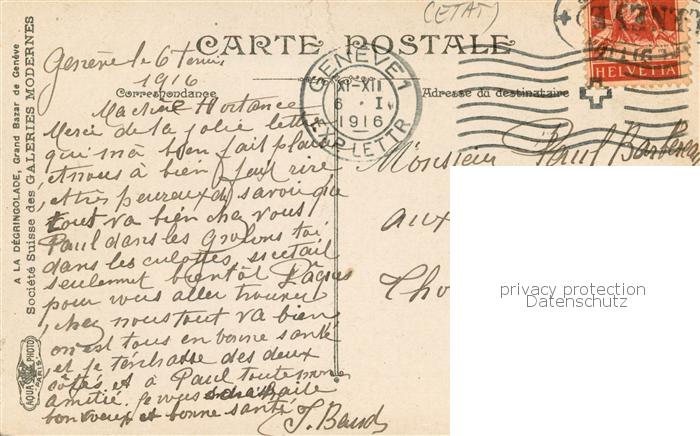 (ETAT)
CARTE POSTALE
Correspondance
Adresse du destinataire
GENÈVE 1
XI-XII
6 . I.
1916
EXP. LETTR.
HELVETIA
A LA DÉGRINGOLADE, Grand Bazar de Genève
Société Suisse des GALERIES MODERNES
AQUA PHOTO
PARIS
Genève le 6
1916
Hortance
Merci de la jolie lettre
qui m'a bien fait plaisir
et nous a bien fait rire
et très heureux de savoir que
tout va bien chez vous
Paul dans les toi
dans les culottes, si c'était
seulement bientôt Pâques
pour vous aller trouver
chez nous tout va bien
on est tous en bonne santé
et je t'embrasse des deux
côtés et à Paul toute mon
amitié. Je vous souhaite
bon voeux et bonne santé
J. Baud
Monsieur Paul
aux
Cho
privacy protection
Datenschutz